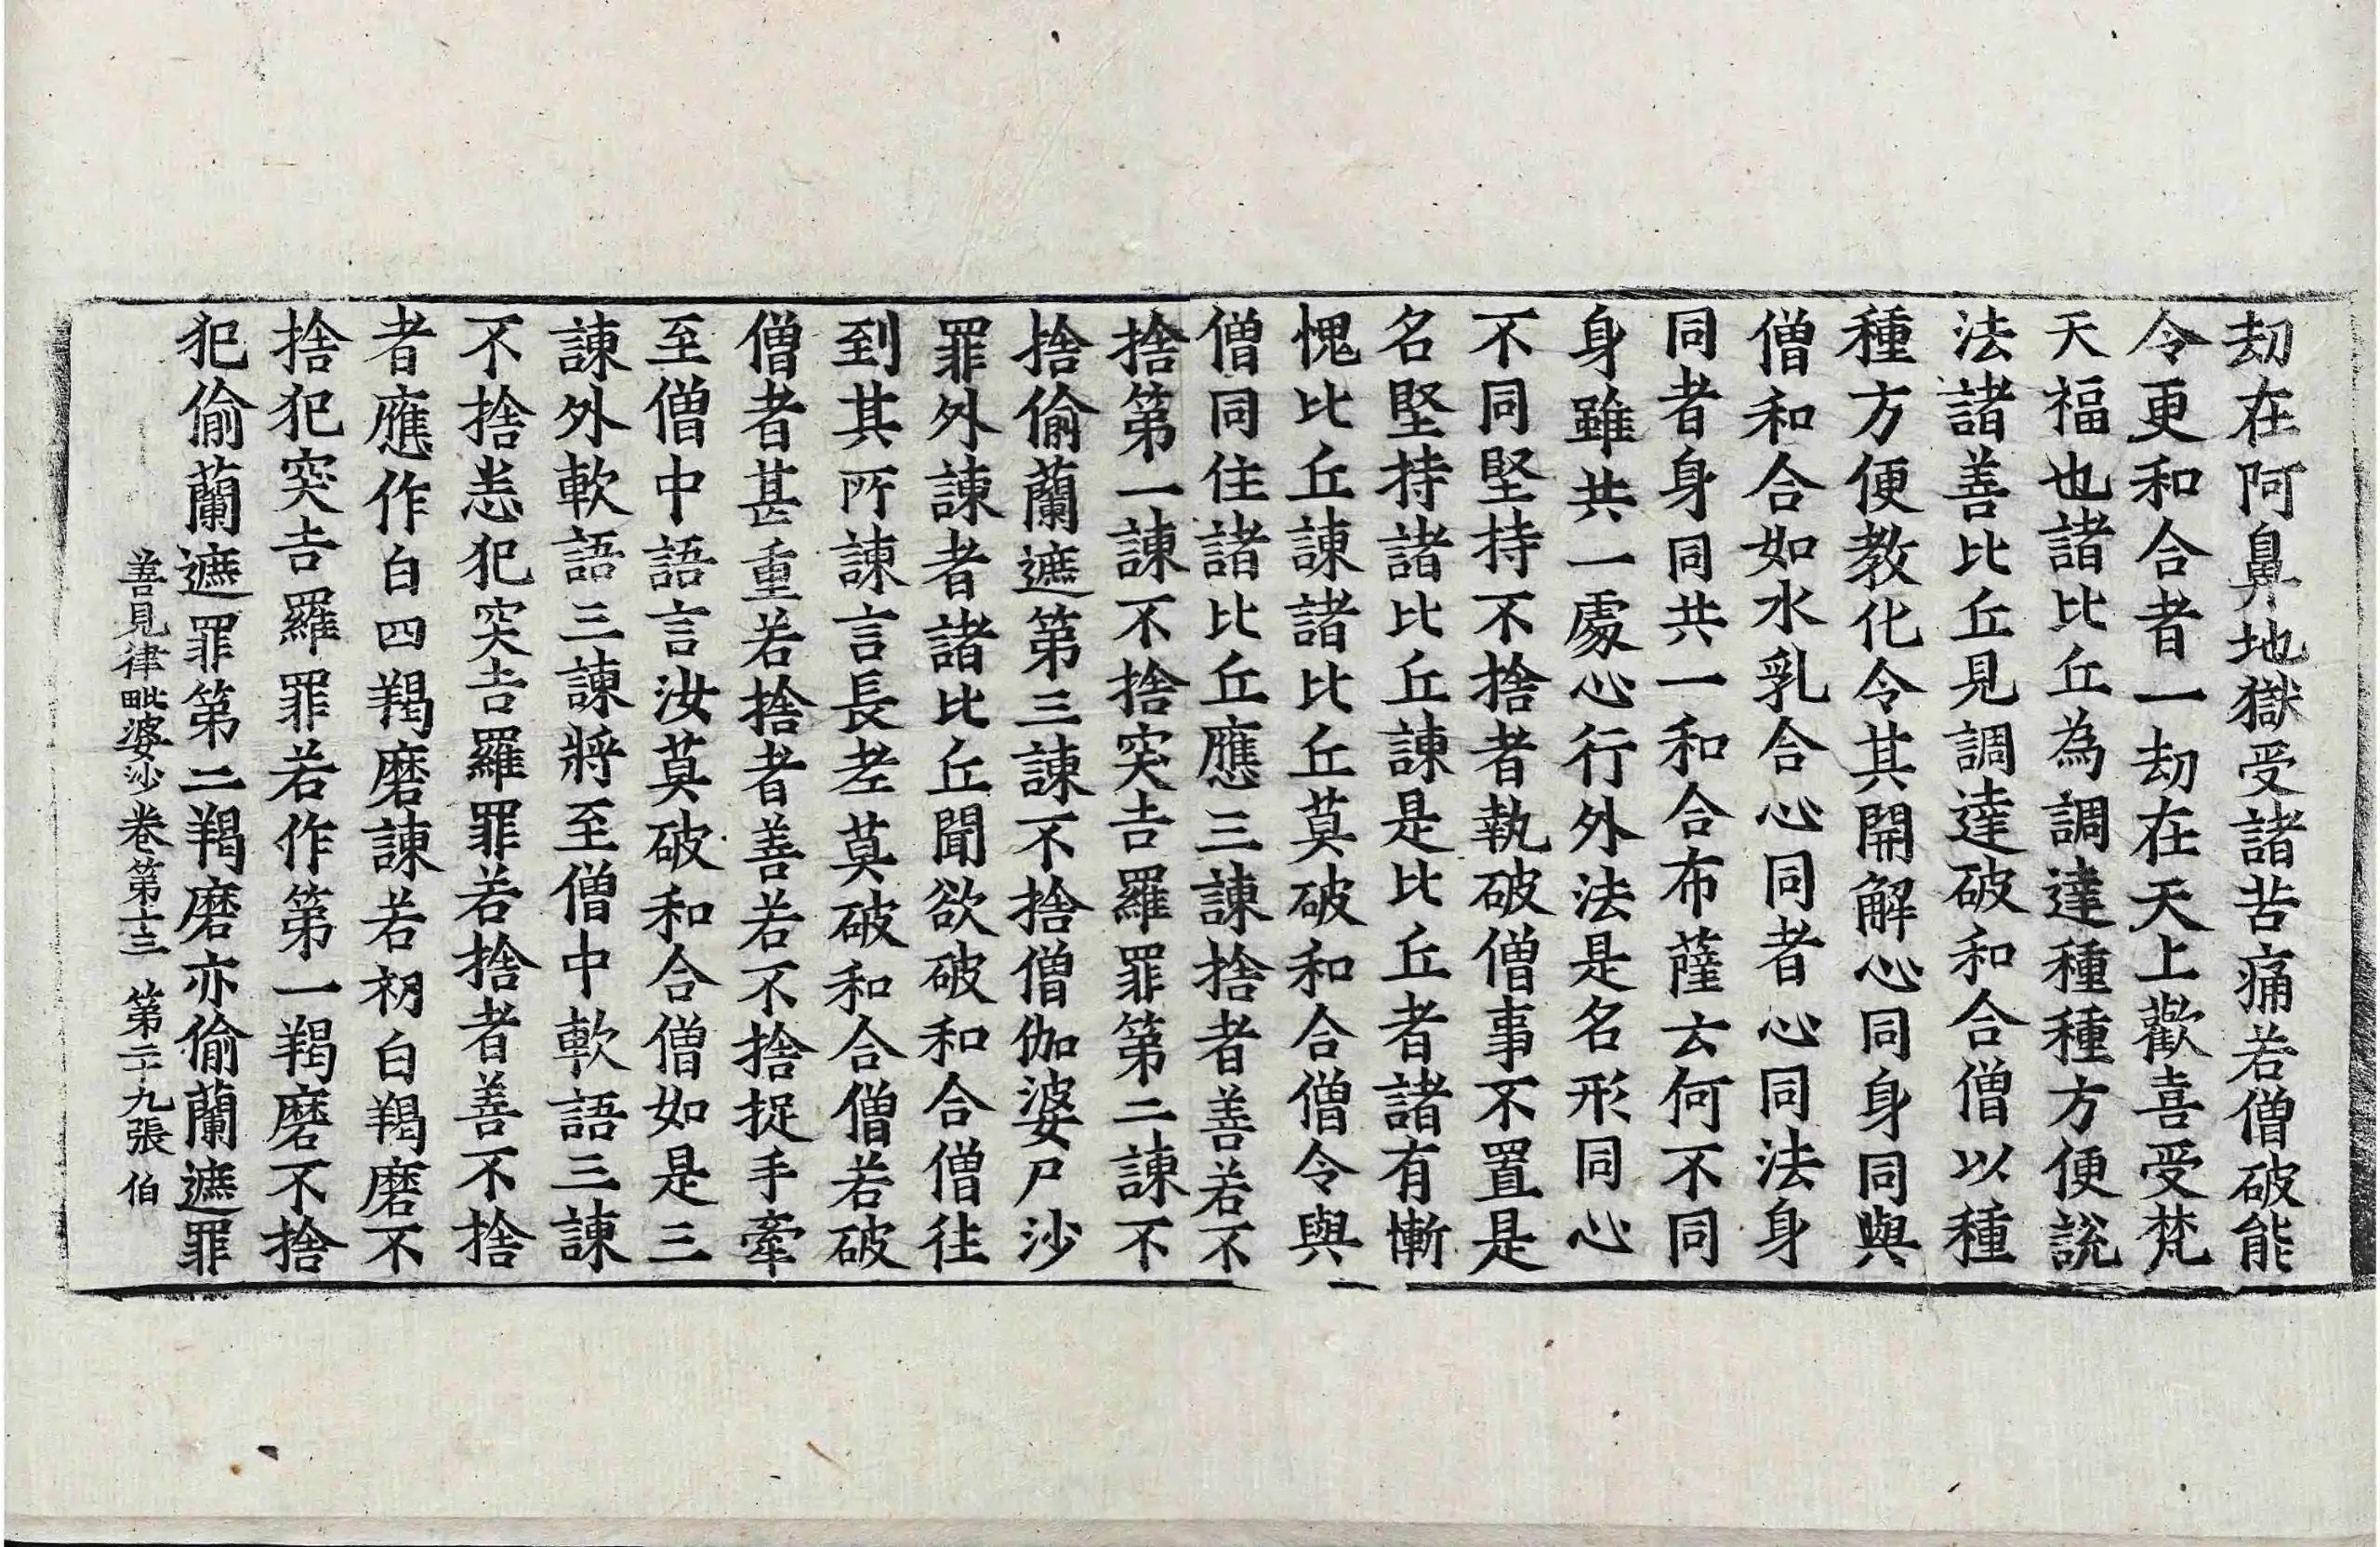 劫在阿鼻地獄受諸苦痛若僧破能
令更和合者一劫在天上歡喜受梵
天福也諸比丘為調達種種方便說
法諸善比丘見調達破和合僧以種
種方便教化令其開解心同身同與
僧和合如水乳合心同者心同法身
同者身同共一和合布薩云何不同
身雖共一處心行外法是名形同心
不同堅持不捨者執破僧事不置是
名堅持諸比丘諫是比丘者諸有慚
愧比丘諫諸比丘莫破和合僧令與
僧同住諸比丘應三諫捨者善若不
捨第一諫不捨突吉羅罪第二諫不
捨偷蘭遮第三諫不捨僧伽婆尸沙
罪外諫者諸比丘聞欲破和合僧往
到其所諫言長老莫破和合僧若破
僧者甚重若捨者善若不捨捉手牽
至僧中語言汝莫破和合僧如是三
諫外軟語三諫將至僧中軟語三諫
不捨恙犯突吉羅罪若捨者善不捨
者應作白四羯磨諫若初白羯磨不
捨犯突吉羅罪若作第一羯磨不捨
犯偷蘭遮罪第二羯磨亦偷蘭遮罪
善見律毗婆沙卷第十三 第二十九張 伯